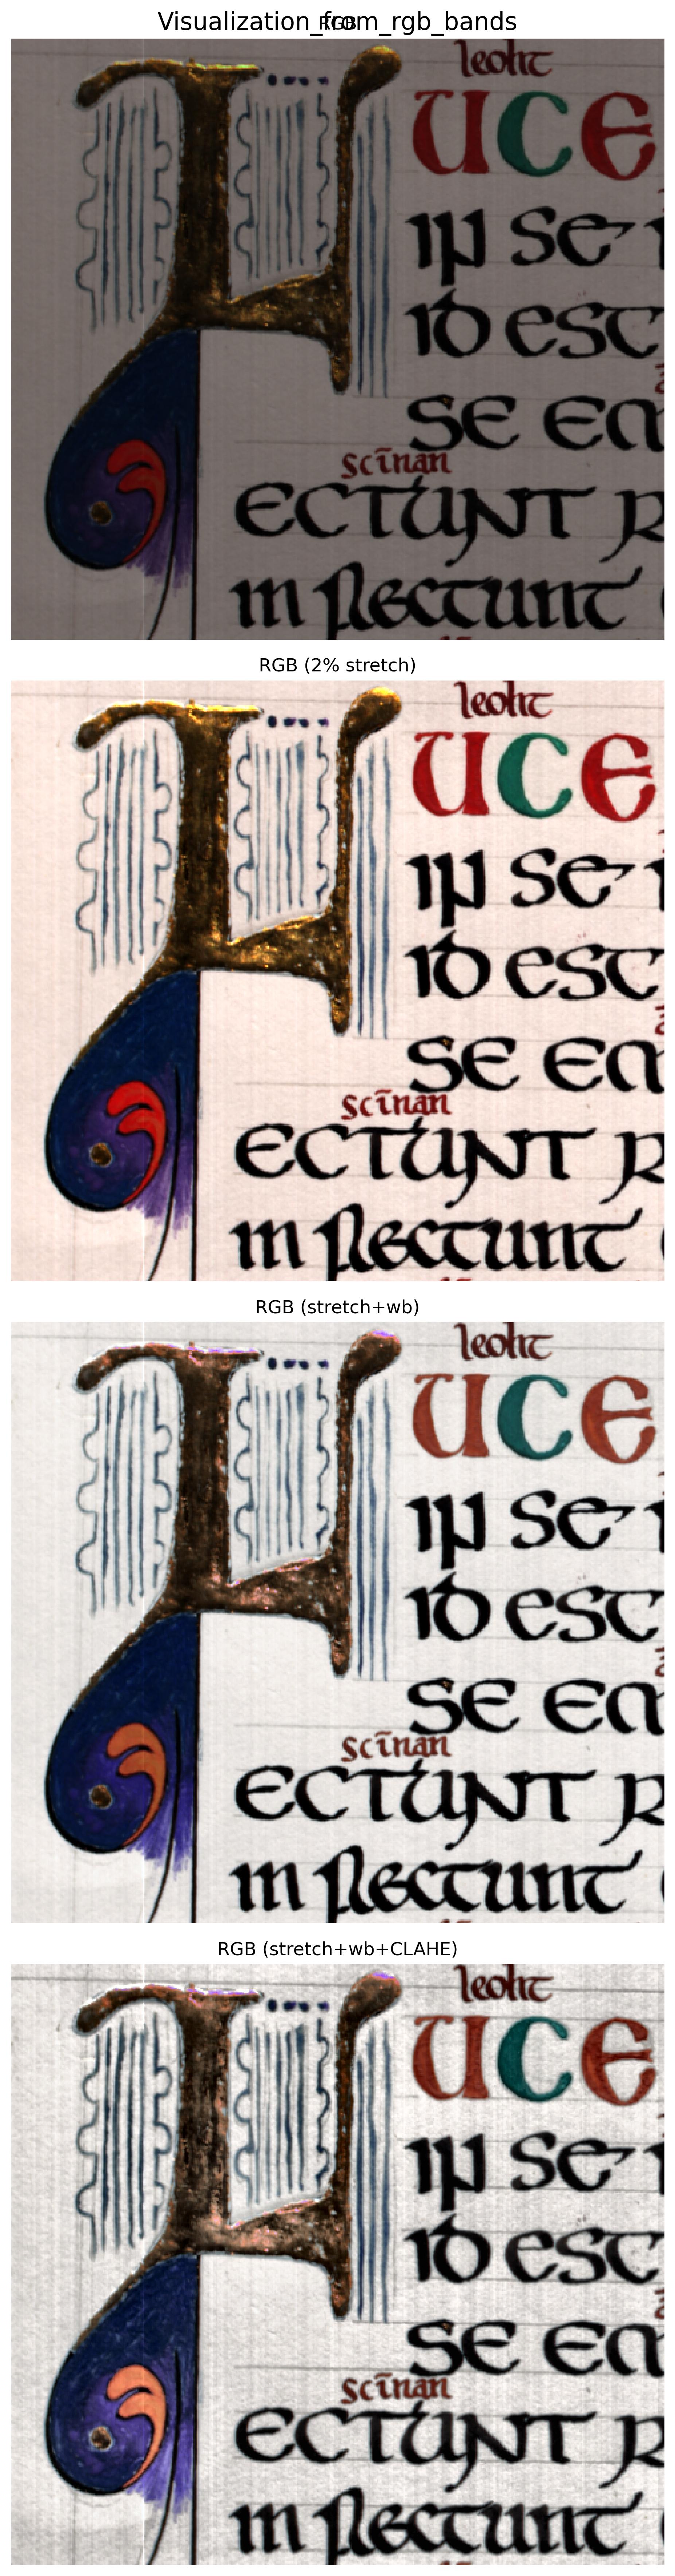 Visualization_from_rgb_bands
RGB
leoht
uce
in se
id est
se em
scīnan
ectunt r
in flectunt
RGB (2% stretch)
leoht
uce
in se
id est
se em
scīnan
ectunt r
in flectunt
RGB (stretch+wb)
leoht
uce
in se
id est
se em
scīnan
ectunt r
in flectunt
RGB (stretch+wb+CLAHE)
leoht
uce
in se
id est
se em
scīnan
ectunt r
in flectunt